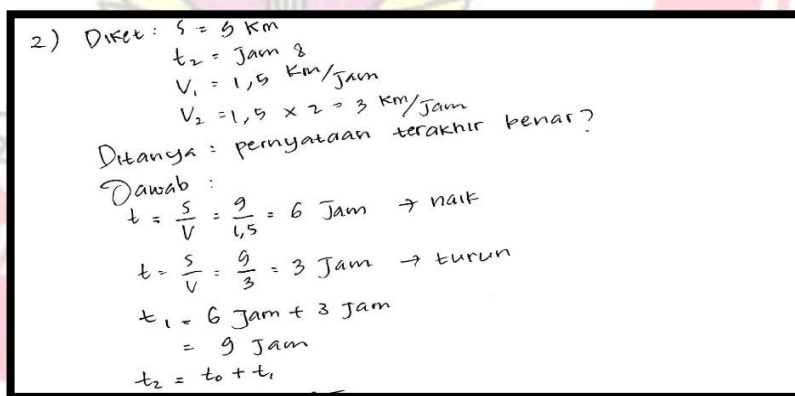 2) Diket : S = 9 Km
t₂ = Jam 8
V₁ = 1,5 Km/Jam
V₂ = 1,5 x 2 = 3 Km/Jam
Ditanya : pernyataan terakhir benar?
Jawab :
t = S/V = 9/1,5 = 6 Jam → naik
t = S/V = 9/3 = 3 Jam → turun
t₁ = 6 Jam + 3 Jam
= 9 Jam
t₂ = t₀ + t₁